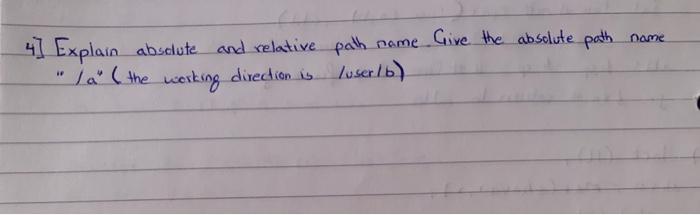 4] Explain absolute and relative path name. Give the absolute path name
" /a" ( the working direction is /user/b)